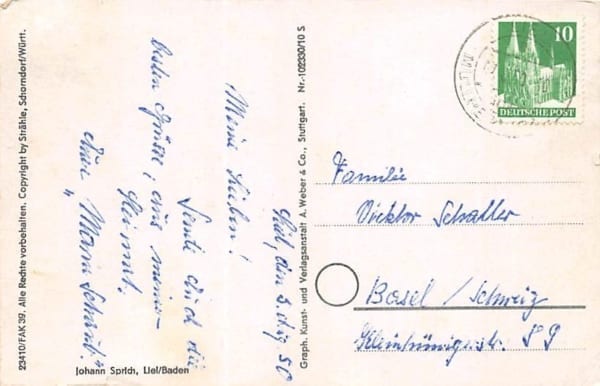 23410/FAK 39. Alle Rechte vorbehalten. Copyright by Strähle, Schorndorf/Württ.
Meine Lieben!
Sende Euch die
besten Grüsse, aus meiner
Heimat.
Eure Maria Schaub.
Johann Sprich, Liel/Baden
Graph. Kunst- und Verlagsanstalt A. Weber & Co., Stuttgart. Nr. 102330/10 S
10
DEUTSCHE POST
Familie
Viktor Schaller
Basel / Schweiz
Kleinhüningerstr. 59